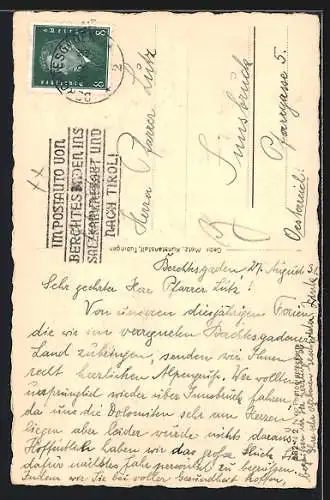 DEUTSCHES REICH
8 8
2
IM POSTAUTO VON
BERCHTESGADEN INS
SALZKAMMERGUT UND
NACH TIROL!
Herrn Pfarrer Lutz
Innsbruck
Pfarrgasse 5.
Oesterreich!
Gebr. Metz, Kunstanstalt, Tübingen
Berchtesgaden 27. August 31.
Sehr geehrter Herr Pfarrer Lutz!
Von unseren diesjährigen Ferien,
die wir im verregneten Berchtesgadener
Land zubringen, senden wir Ihnen
recht herzlichen Alpengruß. Wir wollten
ursprünglich wieder über Innsbruck fahren,
da uns die Dolomiten sehr am Herzen
liegen aber leider wurde nichts daraus.
Hoffentlich haben wir das große Glück
dafür nächstes Jahr persönlich zu begrüßen.
Indem wir Sie bei voller Gesundheit hoffen,